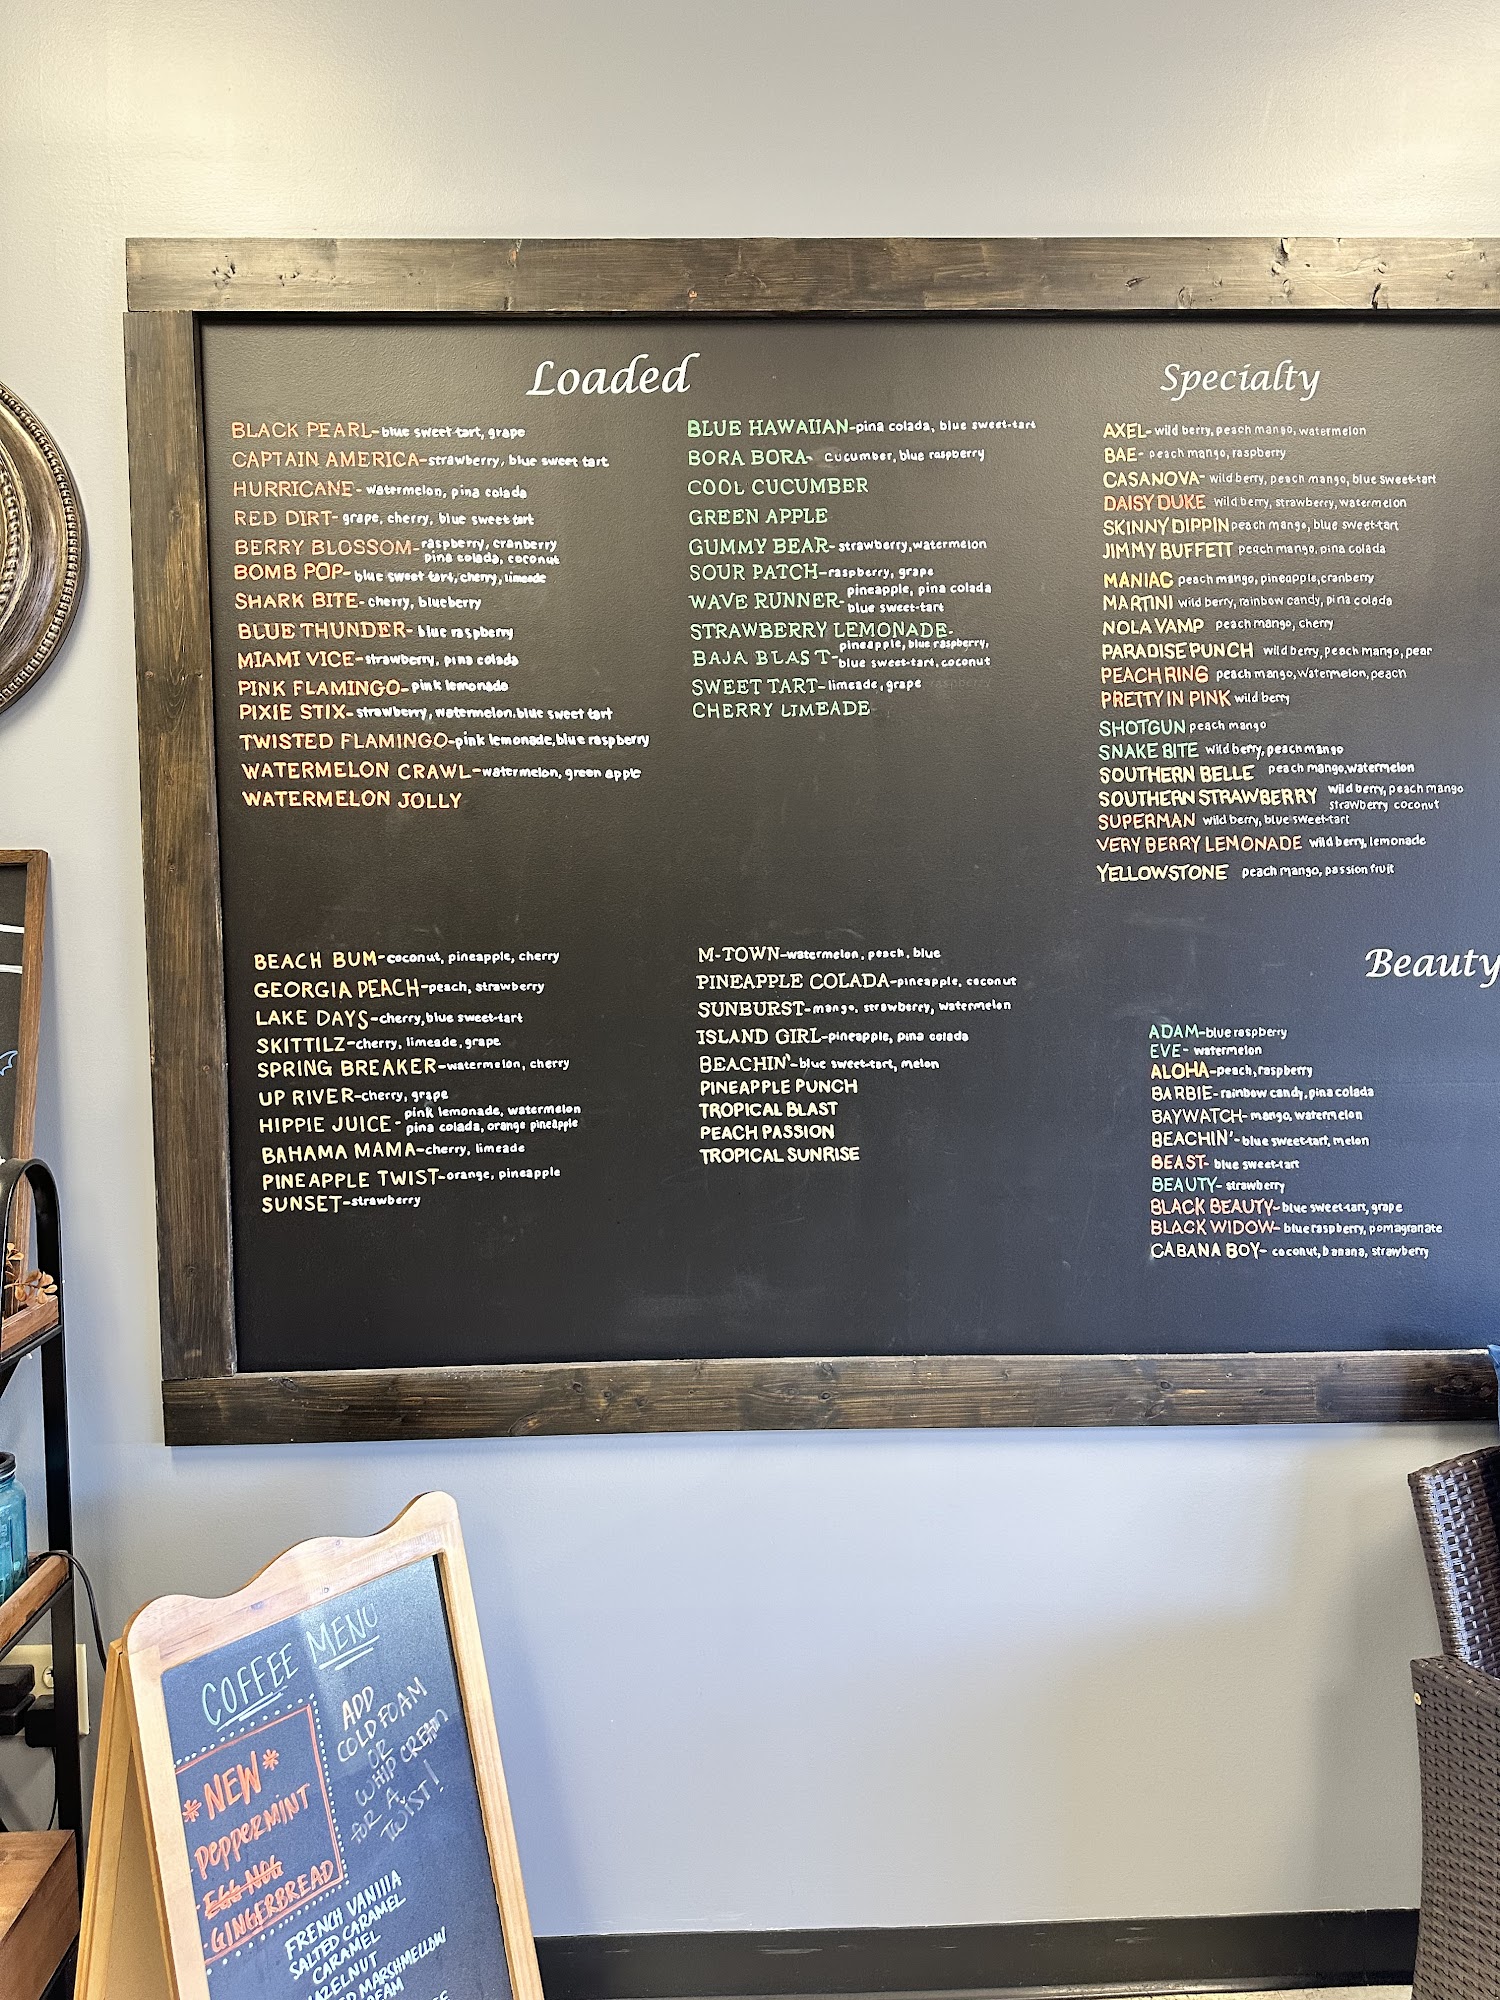 Loaded
BLACK PEARL-blue sweet tart, grape
CAPTAIN AMERICA-strawberry, blue sweet tart
HURRICANE- watermelon, pina colada
RED DIRT- grape, cherry, blue sweet tart
BERRY BLOSSOM-raspberry, cranberry
pina colada, coconut
BOMB POP-blue sweet tart, cherry, limeade
SHARK BITE-cherry, blueberry
BLUE THUNDER- blue raspberry
MIAMI VICE-strawberry, pina colada
PINK FLAMINGO-pink lemonade
PIXIE STIX-strawberry, watermelon, blue sweet tart
TWISTED FLAMINGO-pink lemonade, blue raspberry
WATERMELON CRAWL-watermelon, green apple
WATERMELON JOLLY
BLUE HAWAIIAN-pina colada, blue sweet-tart
BORA BORA- cucumber, blue raspberry
COOL CUCUMBER
GREEN APPLE
GUMMY BEAR-strawberry, watermelon
SOUR PATCH-raspberry, grape
WAVE RUNNER-pineapple, pina colada
blue sweet-tart
STRAWBERRY LEMONADE-
BAJA BLAST-pineapple, blue raspberry,
blue sweet-tart, coconut
SWEET TART-limeade, grape
CHERRY LIMEADE
BEACH BUM-coconut, pineapple, cherry
GEORGIA PEACH-peach, strawberry
LAKE DAYS-cherry, blue sweet-tart
SKITTILZ-cherry, limeade, grape
SPRING BREAKER-watermelon, cherry
UP RIVER-cherry, grape
HIPPIE JUICE-pink lemonade, watermelon
pina colada, orange pineapple
BAHAMA MAMA-cherry, limeade
PINEAPPLE TWIST-orange, pineapple
SUNSET-strawberry
M-TOWN-watermelon, peach, blue
PINEAPPLE COLADA-pineapple, coconut
SUNBURST-mango, strawberry, watermelon
ISLAND GIRL-pineapple, pina colada
BEACHIN'-blue sweet-tart, melon
PINEAPPLE PUNCH
TROPICAL BLAST
PEACH PASSION
TROPICAL SUNRISE
Specialty
AXEL- wild berry, peach mango, watermelon
BAE- peach mango, raspberry
CASANOVA- wild berry, peach mango, blue sweet-tart
DAISY DUKE wild berry, strawberry, watermelon
SKINNY DIPPIN peach mango, blue sweet-tart
JIMMY BUFFETT peach mango, pina colada
MANIAC peach mango, pineapple, cranberry
MARTINI wild berry, rainbow candy, pina colada
NOLA VAMP peach mango, cherry
PARADISE PUNCH wild berry, peach mango, pear
PEACH RING peach mango, watermelon, peach
PRETTY IN PINK wild berry
SHOTGUN peach mango
SNAKE BITE wild berry, peach mango
SOUTHERN BELLE peach mango, watermelon
SOUTHERN STRAWBERRY wild berry, peach mango
strawberry coconut
SUPERMAN wild berry, blue sweet-tart
VERY BERRY LEMONADE wild berry, lemonade
YELLOWSTONE peach mango, passion fruit
Beauty
ADAM-blue raspberry
EVE- watermelon
ALOHA-peach, raspberry
BARBIE-rainbow candy, pina colada
BAYWATCH-mango, watermelon
BEACHIN'-blue sweet-tart, melon
BEAST- blue sweet-tart
BEAUTY- strawberry
BLACK BEAUTY-blue sweet-tart, grape
BLACK WIDOW-blue raspberry, pomagranate
CABANA BOY- coconut, banana, strawberry
COFFEE MENU
*NEW*
PEPPERMINT
EGG NOG
GINGERBREAD
ADD
COLD FOAM
OR
WHIP CREAM
FOR A
TWIST!
FRENCH VANILLA
SALTED CARAMEL
CARAMEL
HAZELNUT
MARSHMELLOW